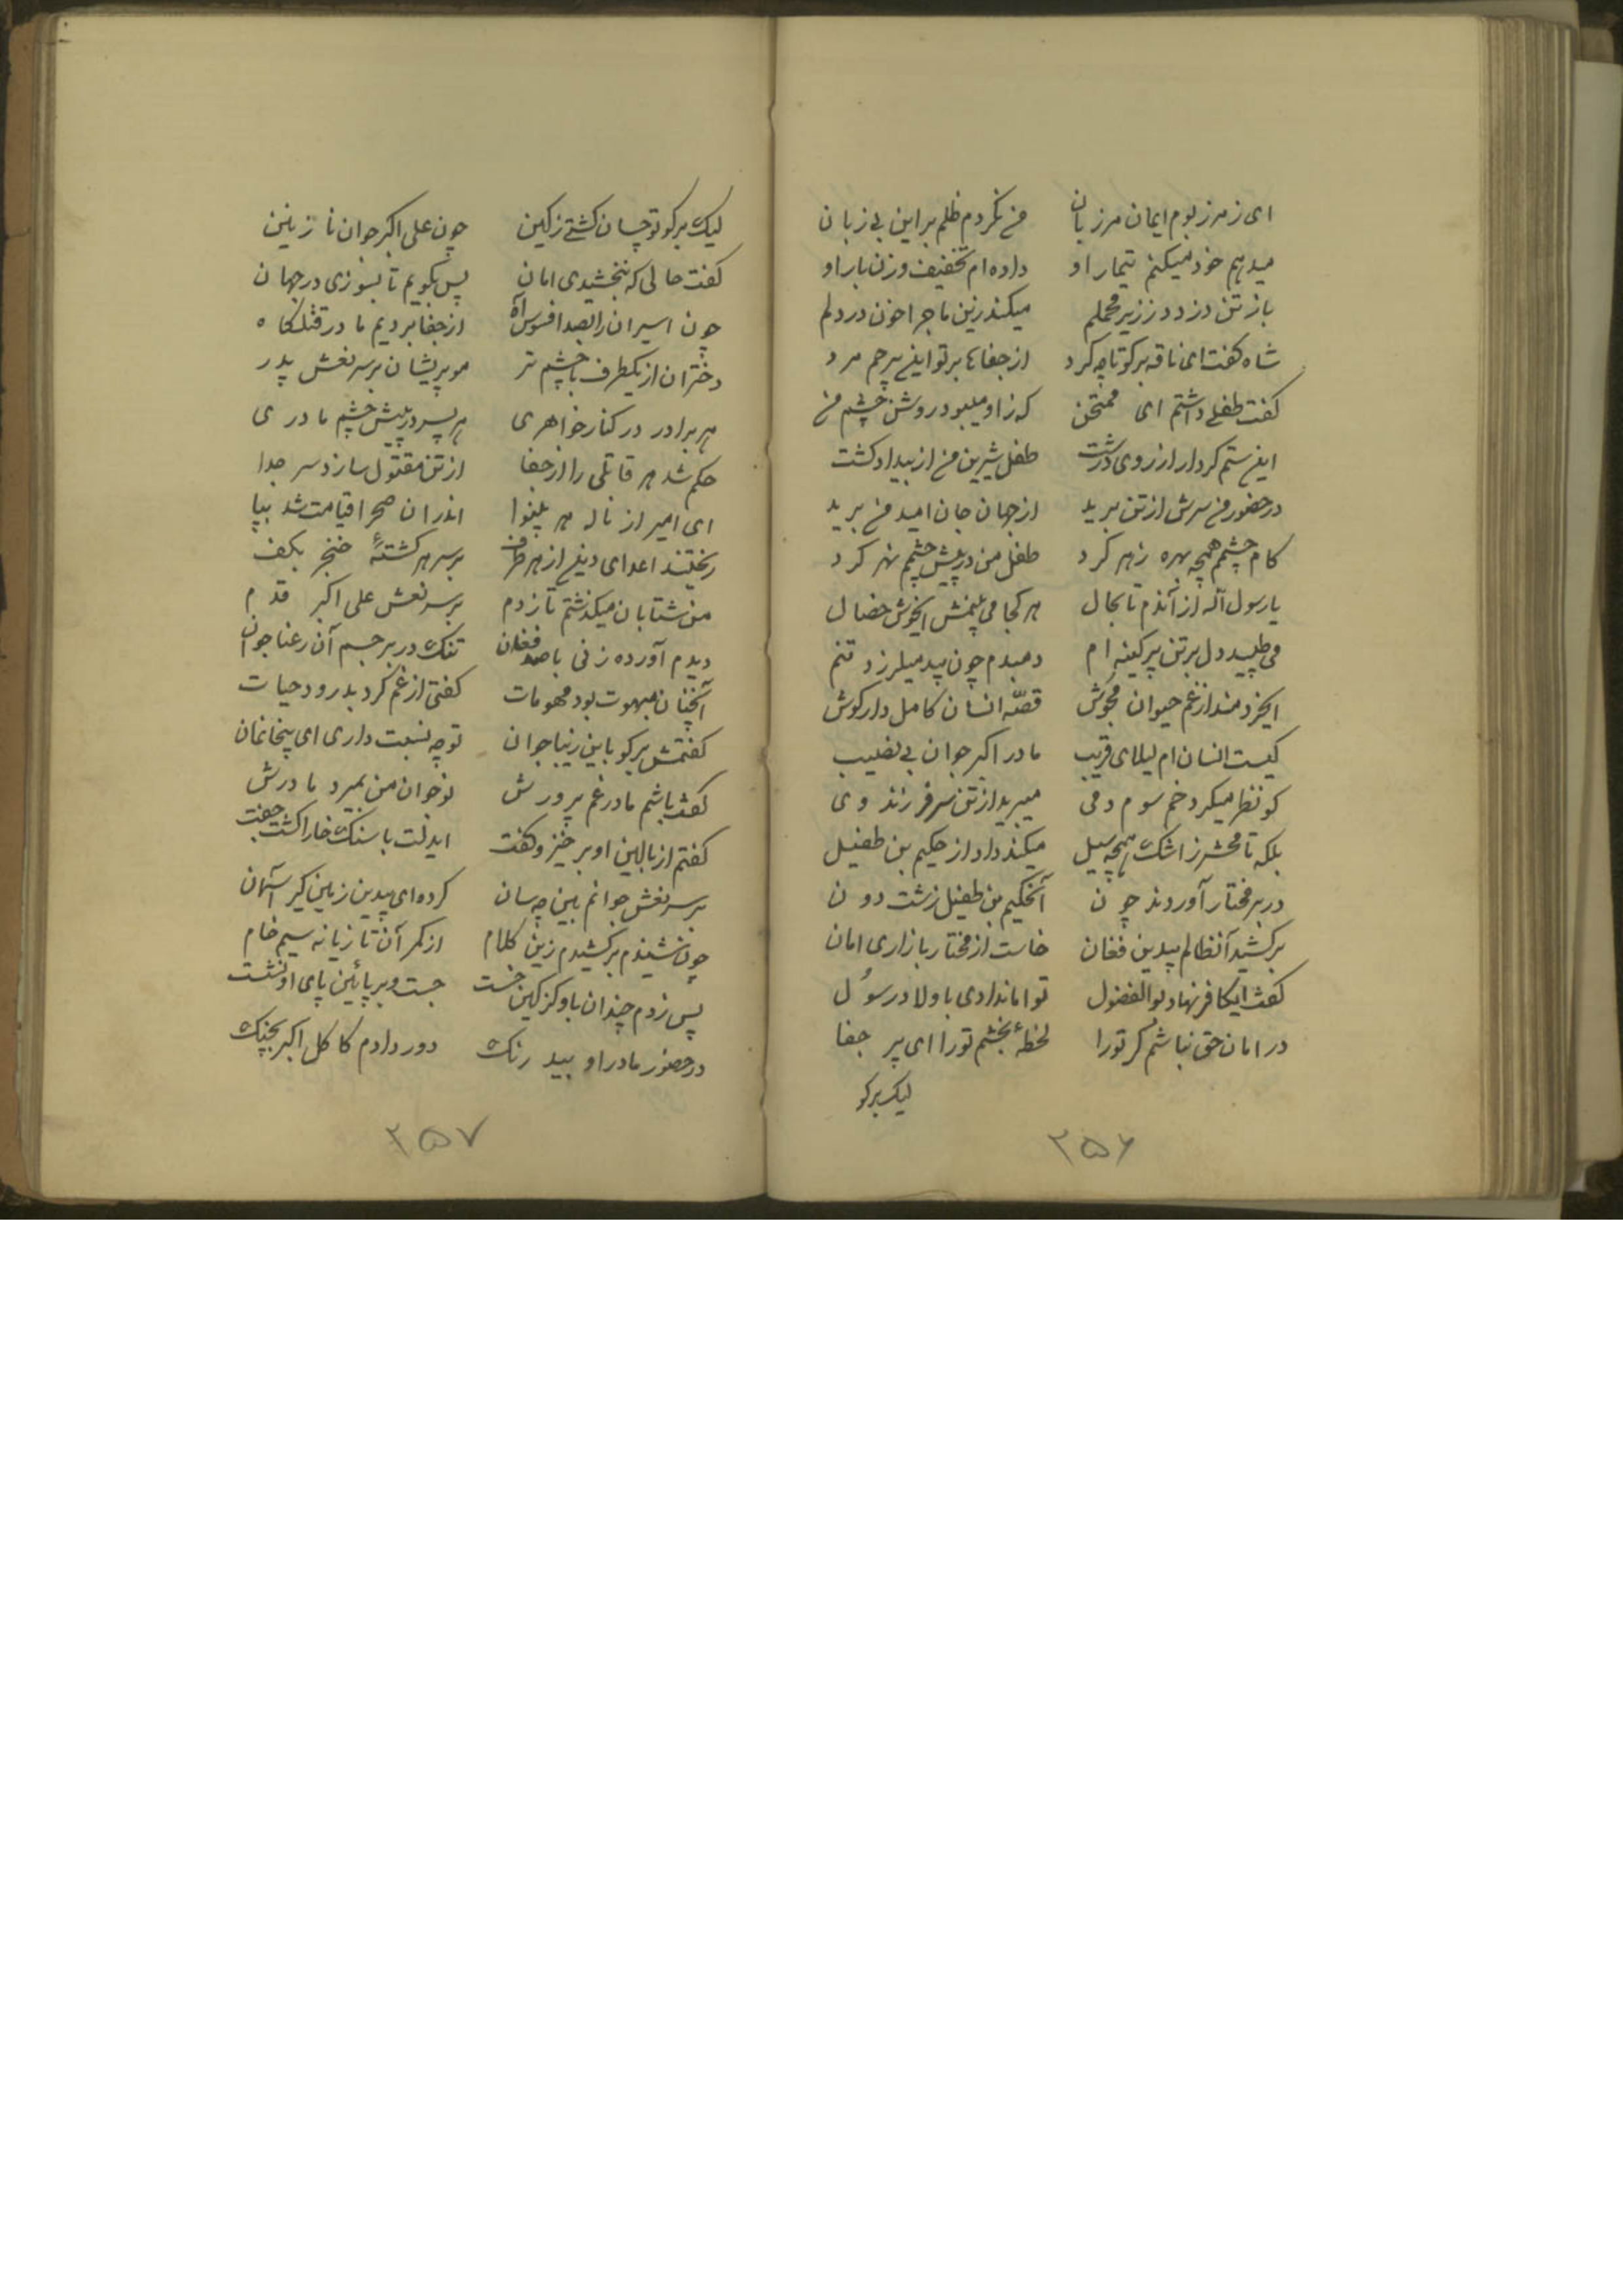 ای ز مرز بوم ایمان مرزبان من نکردم ظلم بر این بی زبان
میدهم خود میکنم تیمار او داده ام تخفیف وزن بار او
باز تن دزدد ز زیر محملم میکند زین ماجرا خون در دلم
شاه کفت ای ناقه برکو تا چه کرد از جفاها بر تو این بیرحم مرد
کفت طفلی داشتم ای ممتحن که ز او میبود روشن چشم من
این ستم کردار از روی درشت طفل شیرین من از بیداد کشت
در حضور من سرش از تن برید از جهان جان امید من برید
کام چشمم همچه بهره زهر کرد طفل من در پیش چشمم نهر کرد
یا رسول آله از آندم تا بحال هر کجا می بینمش ایخوش خصال
می طپد دل بر تن پر کینه ام دمبدم چون بید میلرزد تنم
ایخردمند از غم حیوان مجوش قصّه انسان کامل دار کوش
کیست انسان ام لیلای قریب مادر اکبر جوان بی نصیب
کو نظر میکرد خم سوم دمی میبرید از تن سر فرزند وی
بلکه تا محشر ز اشک همچه سیل میکند داد از حکیم بن طفیل
در بر مختار آوردند چون آنحکیم بن طفیل زشت دون
برکشید آنظالم بیدین فغان خاست از مختار با زاری امان
کفت ایکافر نهاد بوالفضول تو امان دادی باولاد رسول
در امان حق نباشم کر تو را لحظهٔ بخشم تو را ای پر جفا
لیک برکو
۲۵۶
لیک برکو تو چسان کشتی ز کین چون علی اکبر جوان نازنین
کفت حالی که نبخشیدی امان پس بکویم تا بسوزی در جهان
چون اسیران را بصد افسوس آه از جفا بردیم ما در قتلکاه
دختران از یکطرف با چشم تر مو پریشان بر سر نعش پدر
هر برادر در کنار خواهری هر پسر در پیش چشم مادری
حکم شد هر قاتلی را از جفا از تن مقتول سازد سر جدا
ای امیر از ناله هر بینوا اندر ان صحرا قیامت شد بپا
ریختند اعدای دین از هر طرف بر سر هر کشتهٔ خنجر بکف
من شتابان میکذشتم تا زدم بر سر نعش علی اکبر قدم
دیدم آورده زنی با صد فغان تنک در بر جسم آن رعنا جوان
آنچنان مبهوت بود محو مات کفتی از غم کرد بدرود حیات
کفتمش برکو باین زیبا جوان تو چه نسبت داری ای بیخانمان
کفت باشم مادر غم پرورش نوجوان من بمیرد مادرش
کفتم از بالین او برخیز و کفت ایدلت با سنک خارا کشت جفت
بر سر نعش جوانم بین چسان کرده ای بیدین زمین کیر آشیان
چون شنیدم برکشیدم زین کلام از کمر آن تازیانه سیم خام
پس زدم چندان باو کز کین خست جست و بر پائین پای او نشست
در حضور مادر او بید رنک دور دادم کاکل اکبر بچنک
۲۵۷